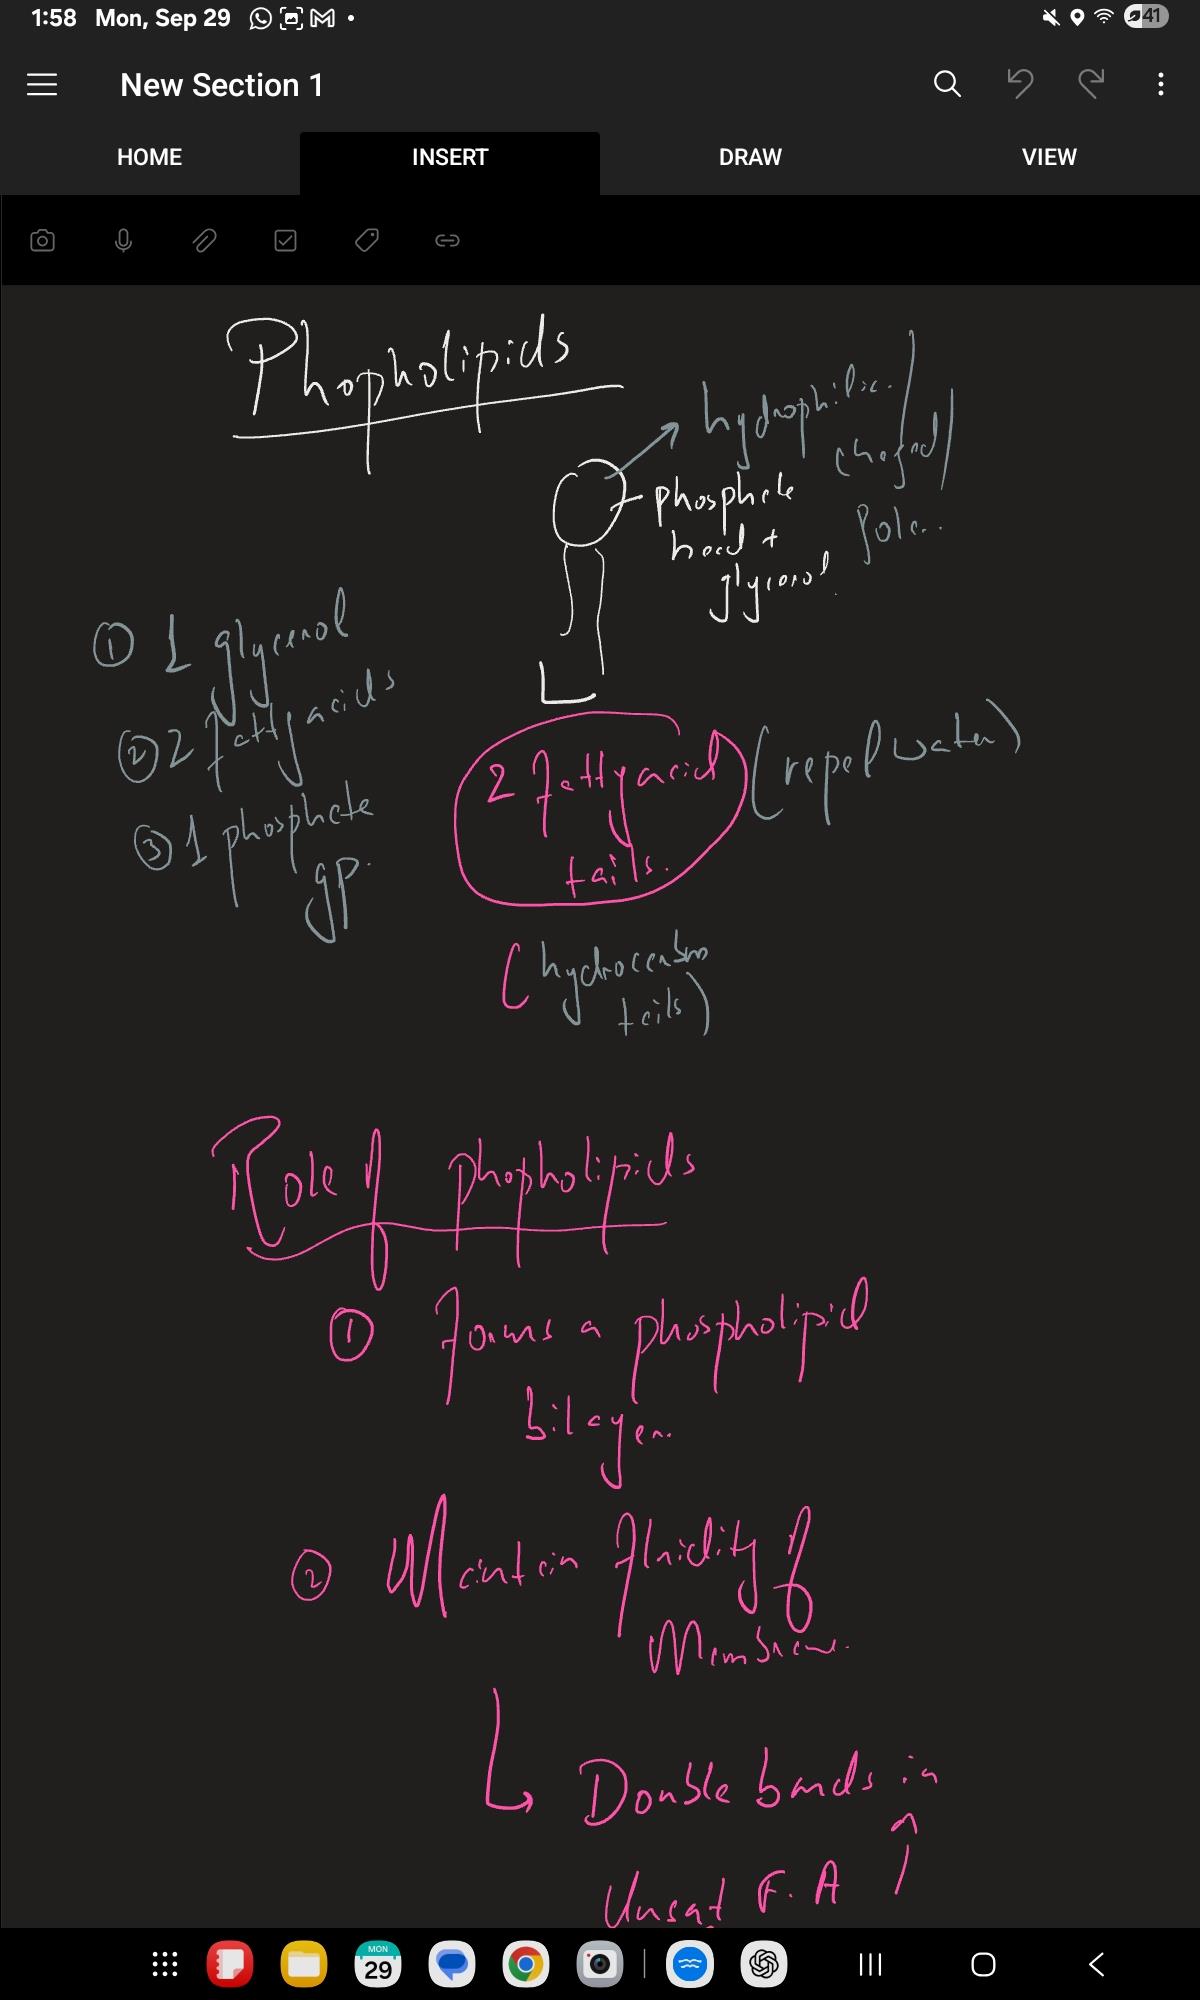 1:58 Mon, Sep 29
41
New Section 1
HOME INSERT DRAW VIEW
Phopholipids
hydrophilic /
charged /
Polar
phosphate
head +
glycerol
① 1 glycerol
② 2 fatty acids
③ 1 phosphate
gp.
2 fatty acid
tails.
(repel water)
(hydrocarbon
tails)
Role of phopholipids
① Forms a phospholipid
bilayer.
② Maintain fluidity of
Membrane.
Double bonds in
Unsat F.A
MON
29